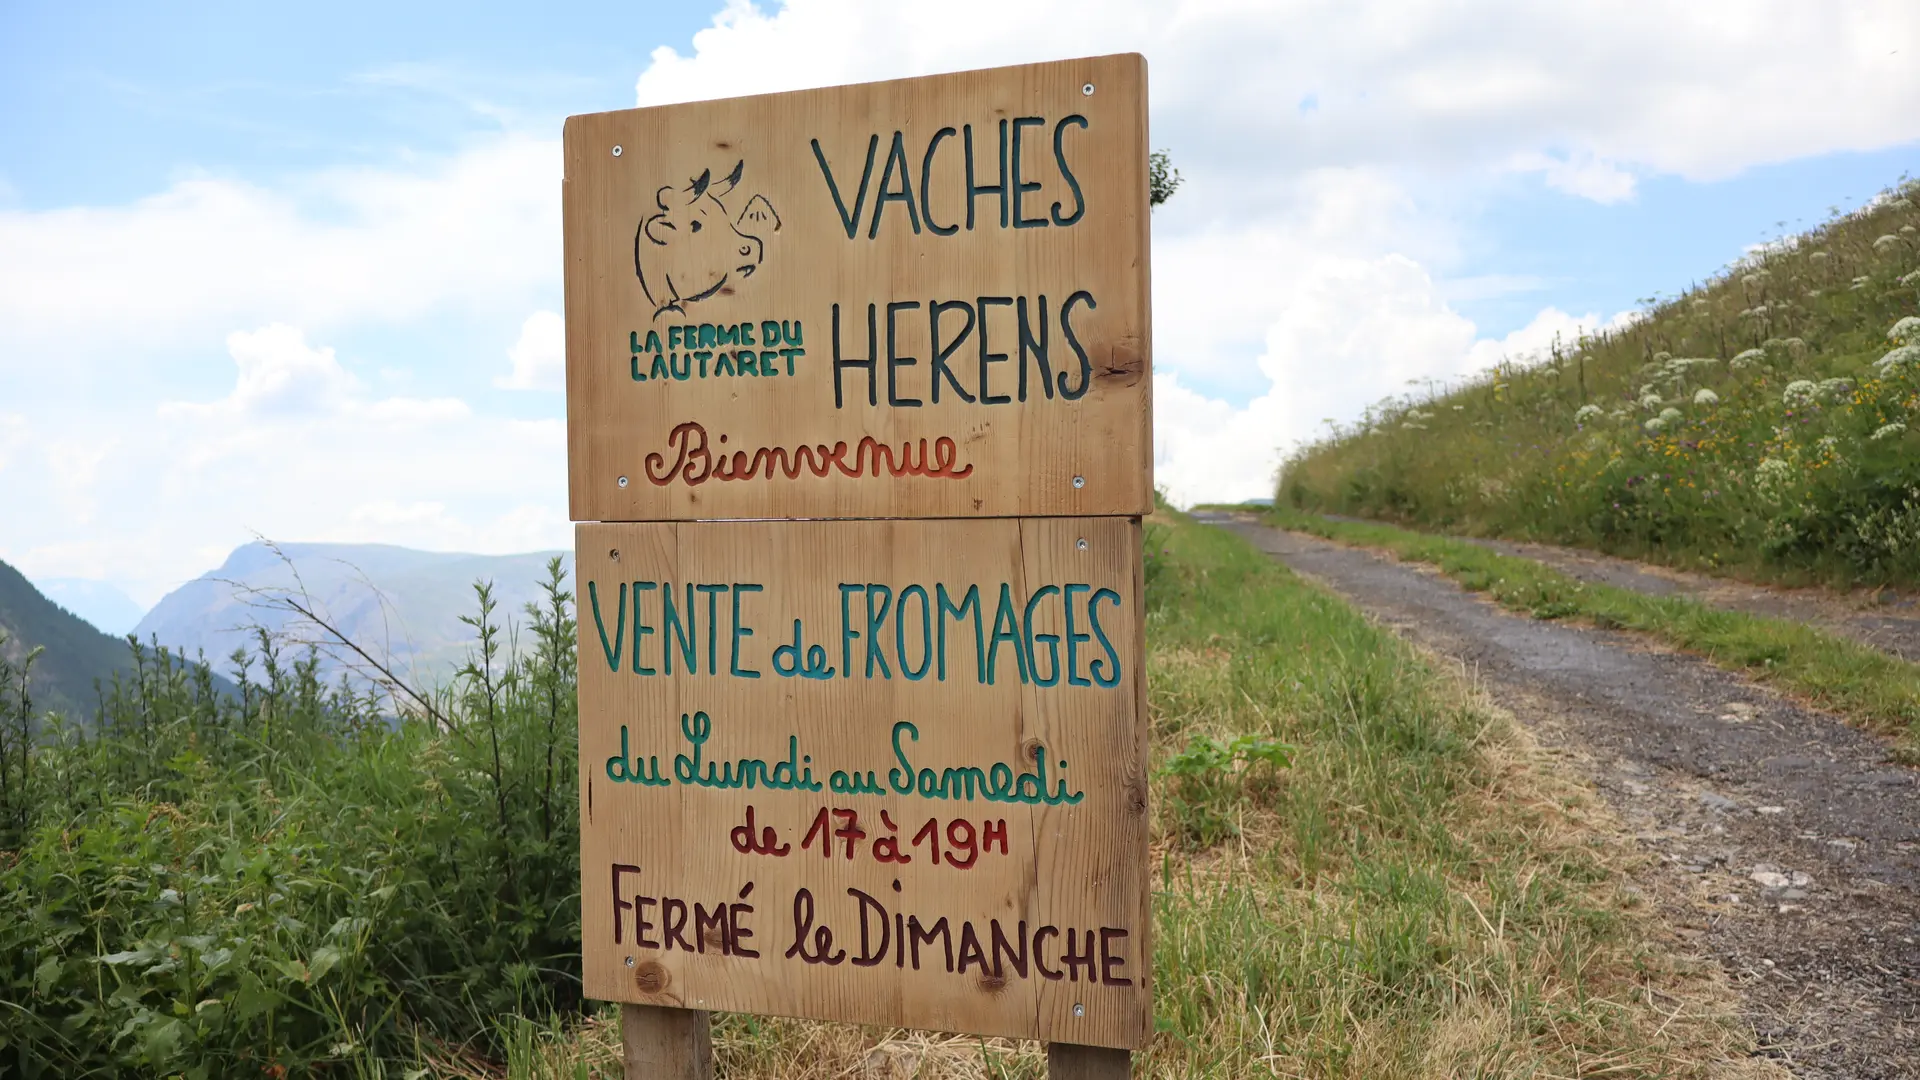 VACHES
HERENS
LA FERME DU
LAUTARET
Bienvenue
VENTE de FROMAGES
du Lundi au Samedi
de 17 à 19H
FERMÉ le DIMANCHE